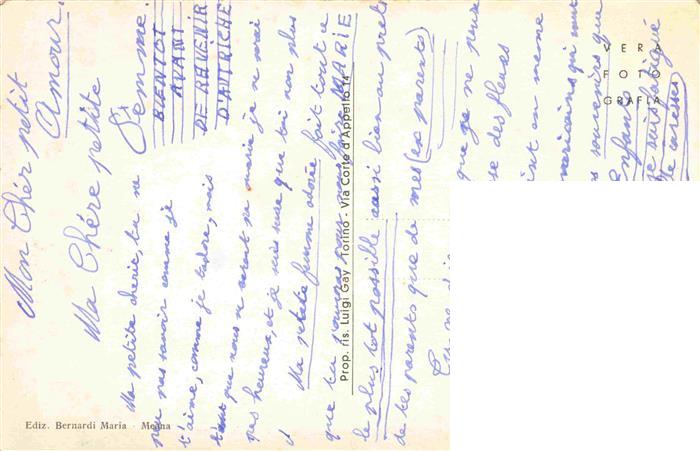 Mon Chér petit
Amour.
Ma Chére petite
Femme.
BIENTOT
AVANT
DE RAVENIR
D'AUTRICHE
Ma petite cherie, tu ne
peu pas savoir comme je
t'aime, comme je t'adore, mais
tant que nous ne seront pa marié je ne serai
pas heureux, et je suis sure que toi non plus
Ma petete femme adorée fait tout ce
que tu pourras pour nous faire MARIE
le plus tot possible aussi bien au pret
de tes parents que de mes (ex parents)
que je ne peux
des fleurs
en meme
americains qui
souvenirs que
Enfans
je suis fatigué
de caresses)
VERA
FOTO
GRAFIA
Prop. ris. Luigi Gay - Torino - Via Corte d'Appello 14
Ediz. Bernardi Maria - Meana